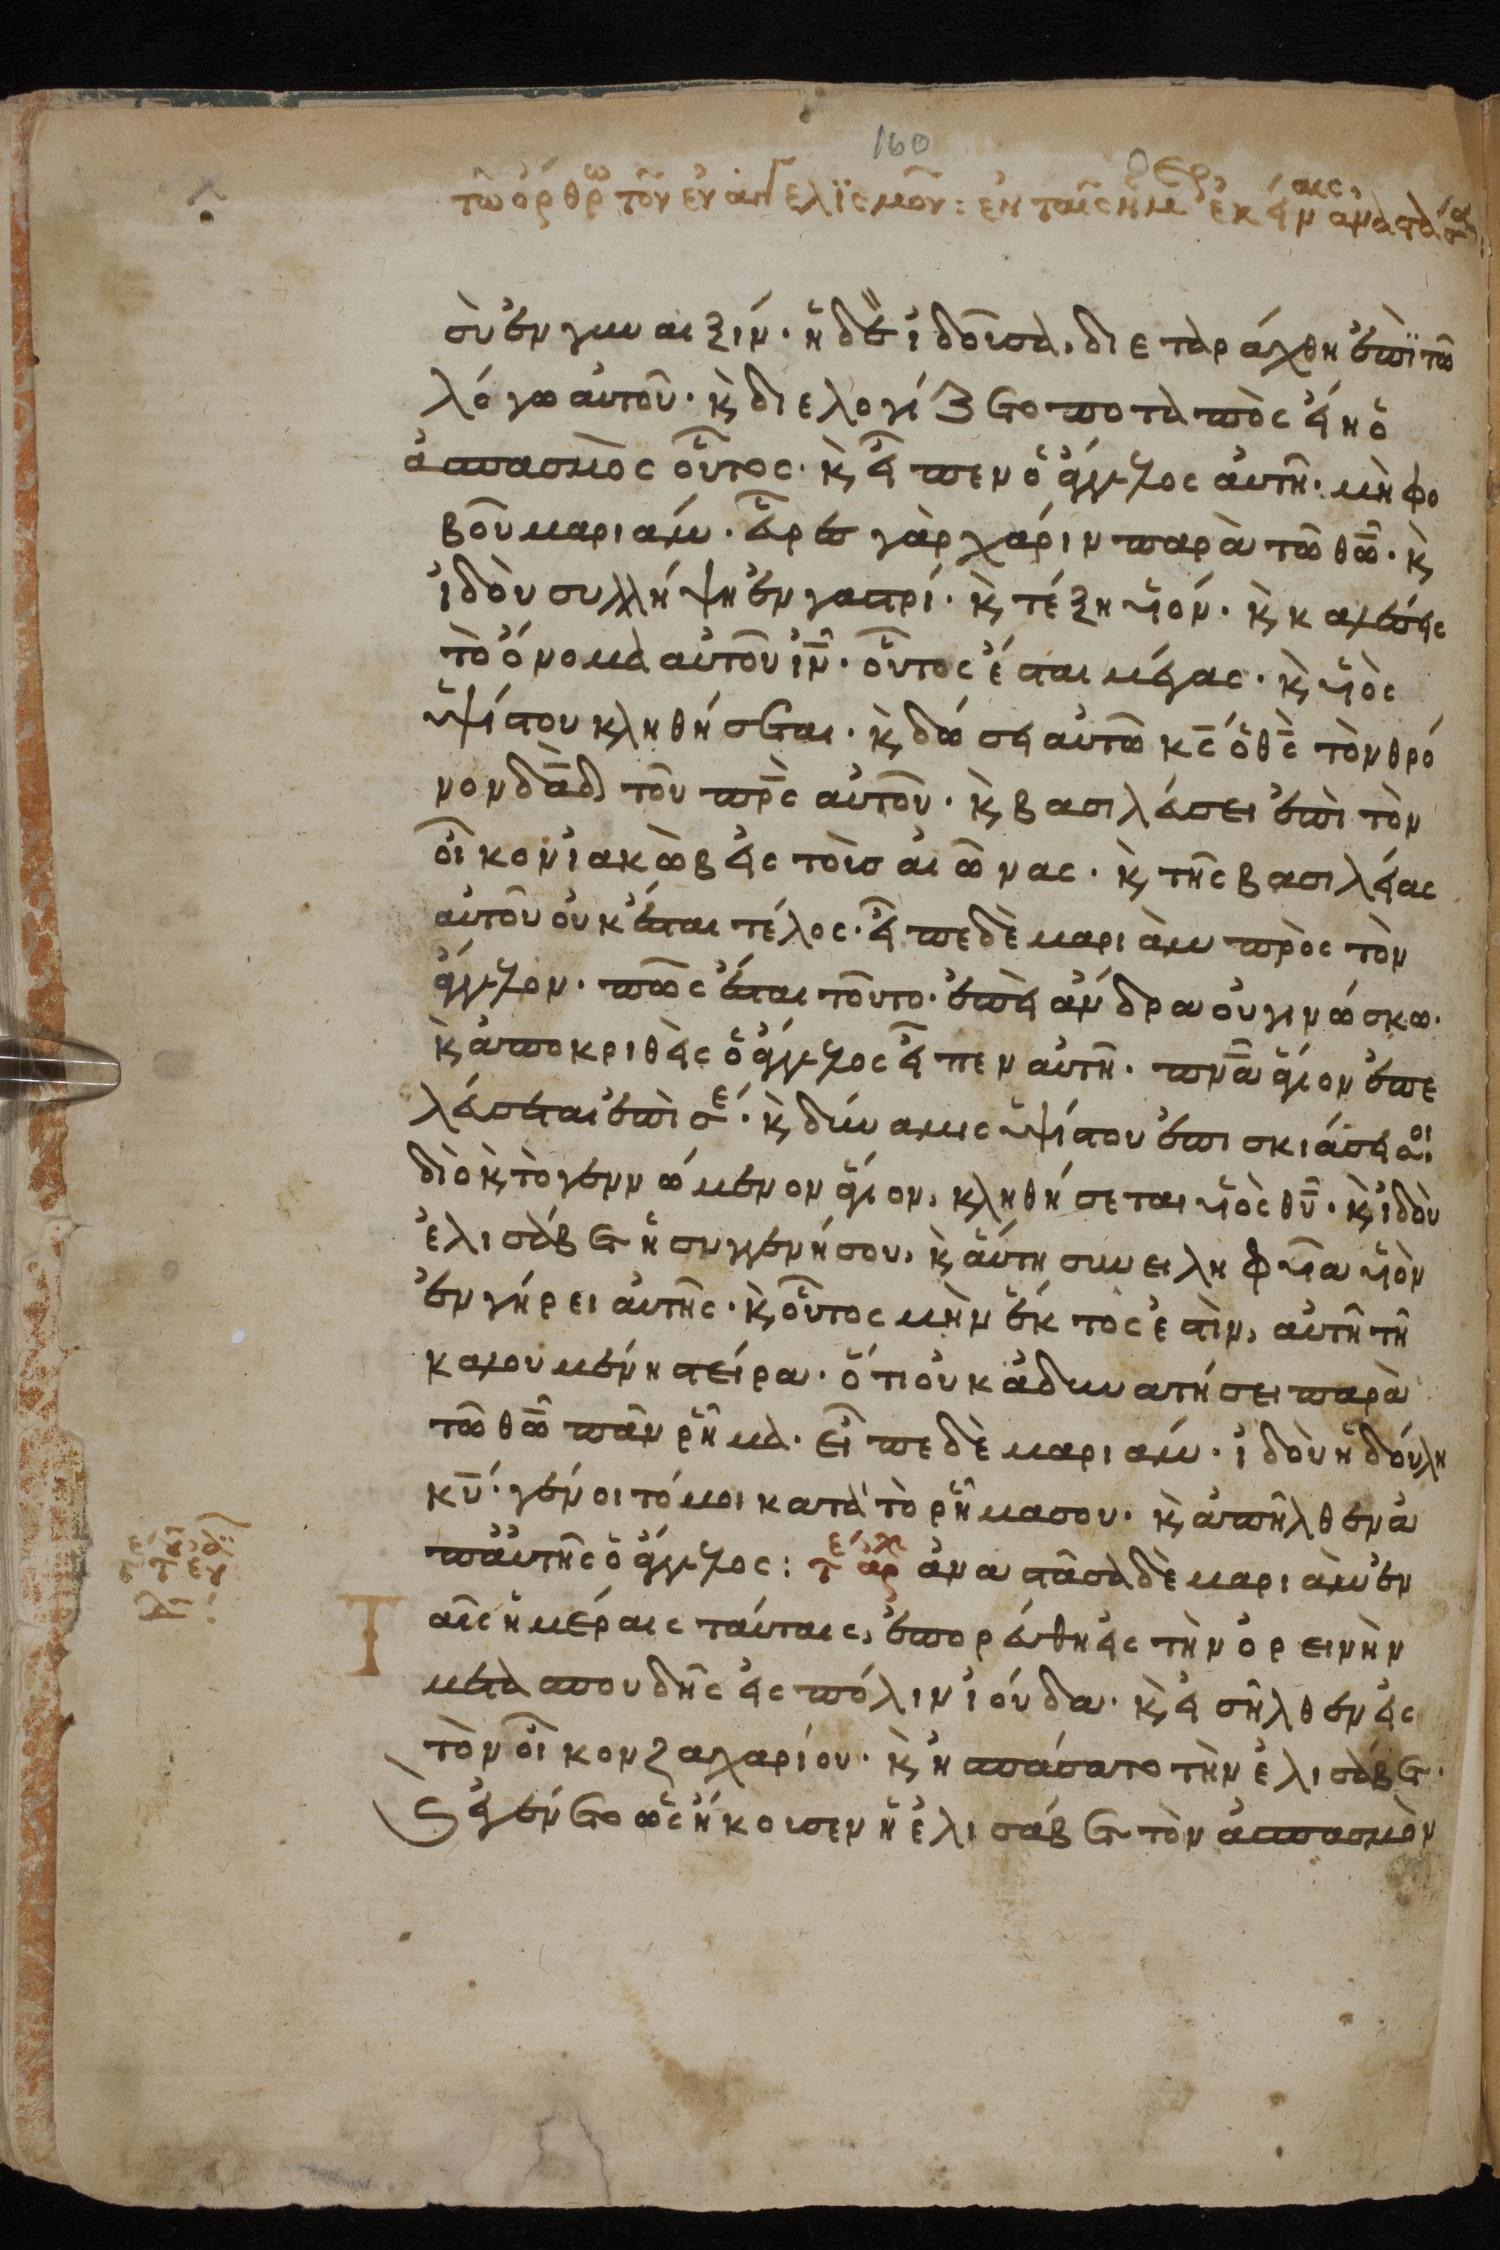 160
τῶ ὄρθρω τοῦ εὐαγγελϊσμοῦ: ἐν ταῖς ἡμέραις, ἐκείναις, ἀναστᾶσα
σὺ ἐν γυναιξίν· ἡ δὲ ἰδοῦσα, διεταράχθη ἐπὶ τῶ
λόγω αὐτοῦ· κ̀ διελογίζετο ποταπὸς εἴη ὁ
ἀσπασμὸς οὗτος· κ̀ εἶπεν ὁ ἄγγελος αὐτῆ· μὴ φο
βοῦ μαριάμ· εὗρες γὰρ χάριν παρὰ τῶ θῶ· κ̀
ἰδοὺ συλλήψη ἐν γαστρί· κ̀ τέξη υἱόν· κ̀ καλέσεις
τὸ ὄνομα αὐτοῦ ἰν̄· οὗτος ἔσται μέγας· κ̀ υἱὸς
ὑψίστου κληθήσεται· κ̀ δώσει αὐτῶ κς̄ ὁ θς̄ τὸν θρό
νον δᾱδ τοῦ πρς̄ αὐτοῦ· κ̀ βασιλεύσει ἐπὶ τὸν
οἶκον ἰακὼβ εἰς τοὺς αἰῶνας· κ̀ τῆς βασιλείας
αὐτοῦ οὐκ ἔσται τέλος· εἶπε δὲ μαριὰμ πρὸς τὸν
ἄγγελον· πῶς ἔσται τοῦτο· ἐπεὶ ἄνδρα οὐ γινώσκω·
κ̀ ἀποκριθεὶς ὁ ἄγγελος εἶπεν αὐτῆ· πνᾱ ἅγιον ἐπε
λεύσεται ἐπὶ σέ· κ̀ δύναμις ὑψίστου ἐπισκιάσει σοι·
διὸ κ̀ τὸ γεννώμενον ἅγιον, κληθήσεται υἱὸς θῡ· κ̀ ἰδοὺ
ἐλισάβετ ἡ συγγενής σου, κ̀ αὕτη συνειληφυῖα υἱὸν
ἐν γήρει αὐτῆς· κ̀ οὗτος μὴν ἕκτος ἐστὶν, αὐτῆ τῆ
καλουμένη στείρα· ὅτι οὐκ ἀδυνατήσει παρὰ
τῶ θῶ πᾶν ῥῆμα· εἶπε δὲ μαριάμ· ἰδοὺ ἡ δούλη
κῡ· γένοιτό μοι κατὰ τὸ ῥῆμα σου· κ̀ ἀπῆλθεν ἀ
π᾽αὐτῆς ὁ ἄγγελος: τέ ἀρχ ἀναστᾶσα δὲ μαριὰμ ἐν
ταῖς ἡμέραις ταύταις, ἐπορεύθη εἰς τὴν ὀρεινὴν
μετὰ σπουδῆς εἰς πόλιν ἰούδα· κ̀ εἰσῆλθεν εἰς
τὸν οἶκον ζαχαρίου· κ̀ ἠσπάσατο τὴν ἐλισάβετ·
κ̀ ἐγένετο ὡς ἤκουσεν ἡ ἐλισάβετ τὸν ἀσπασμὸν